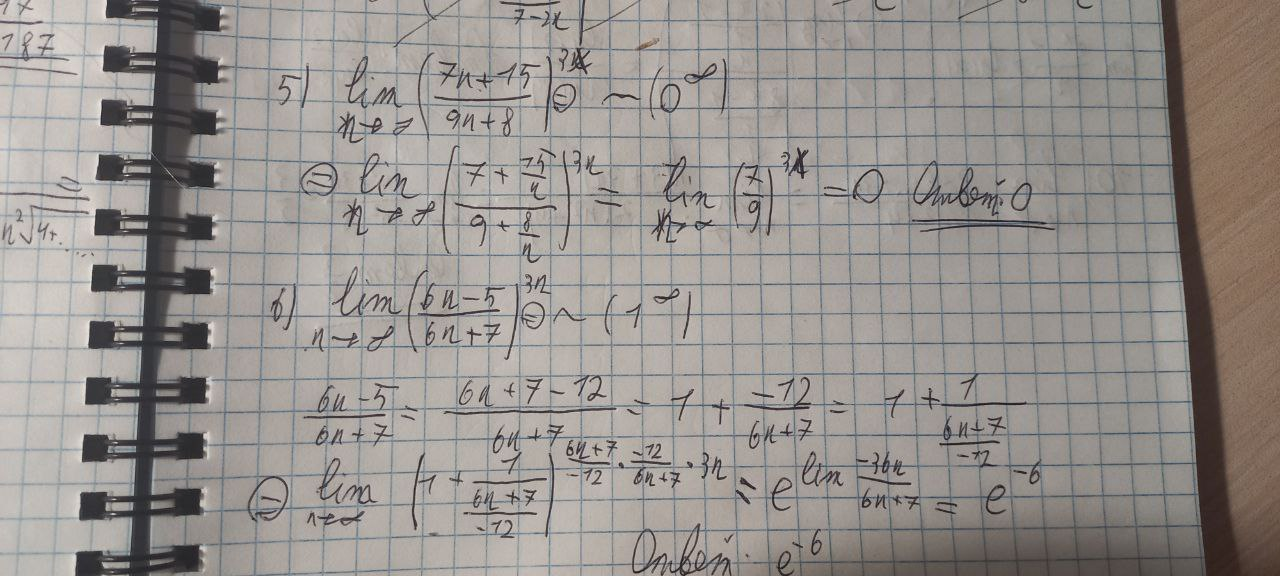 17
187
n²√4+...
7-2n
5) lim n→∞ ((7n+15)/(9n+8))^3n ⊜ ~ (0^∞)
⊜ lim n→∞ ((7+15/n)/(9+8/n))^3n = lim n→∞ (7/9)^3n = 0 Ответ: 0
6) lim n→∞ ((6n-5)/(6n+7))^3n ⊜ ~ (1^∞)
(6n-5)/(6n+7) = (6n+7-12)/(6n+7) = 1 + (-12)/(6n+7) = 1 + 1/((6n+7)/(-12))
⊜ lim n→∞ (1 + 1/((6n+7)/(-12)))^((6n+7)/(-12) · (-12)/(6n+7) · 3n) = e^(lim (-36n)/(6n+7)) = e^-6
Ответ: e^-6